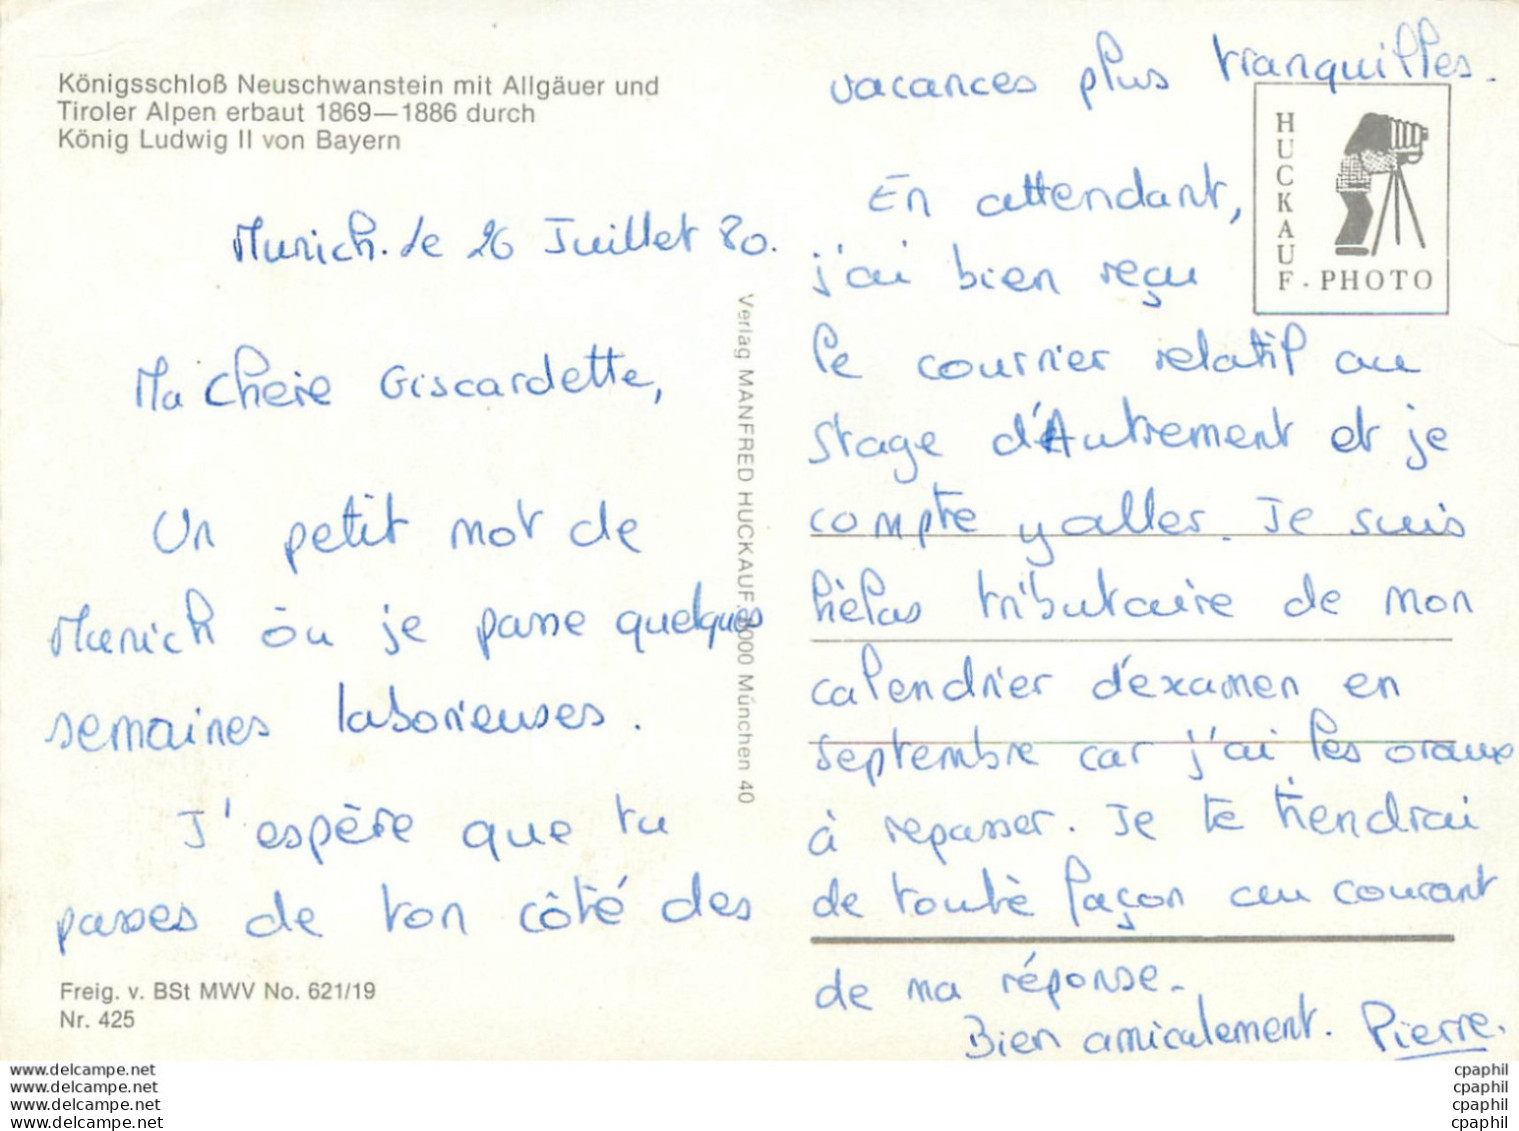 Königsschloß Neuschwanstein mit Allgäuer und
Tiroler Alpen erbaut 1869—1886 durch
König Ludwig II von Bayern
Munich. le 26 Juillet 80.
Ma chère Giscardette,
Un petit mot de
Munich où je passe quelques
semaines laborieuses.
J'espère que tu
passes de ton côté des
Freig. v. BSt MWV No. 621/19
Nr. 425
Verlag MANFRED HUCKAUF. 8000 München 40
vacances plus tranquilles.
En attendant,
j'ai bien reçu
le courrier relatif au
stage d'Autrement et je
compte y aller. Je suis
hélas tributaire de mon
calendrier d'examen en
septembre car j'ai les oraux
à repasser. Je te tiendrai
de toute façon au courant
de ma réponse.
Bien amicalement. Pierre.
HUCKAUF - PHOTO
www.delcampe.net
www.delcampe.net
www.delcampe.net
www.delcampe.net
cpaphil
cpaphil
cpaphil
cpaphil